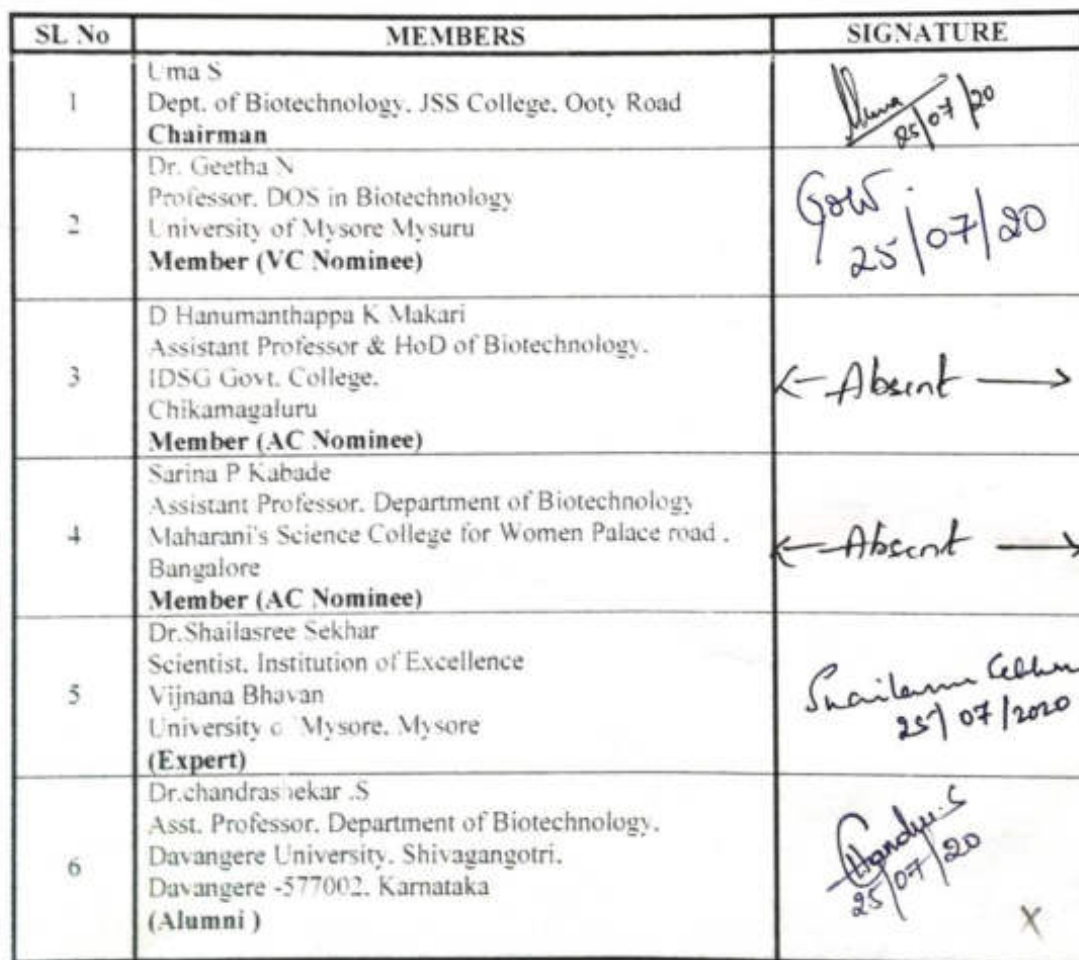 SL No MEMBERS SIGNATURE
1
Uma S
Dept. of Biotechnology, JSS College, Ooty Road
Chairman
Uma
25/07/20
2
Dr. Geetha N
Professor, DOS in Biotechnology
University of Mysore Mysuru
Member (VC Nominee)
25/07/20
3
D Hanumanthappa K Makari
Assistant Professor & HoD of Biotechnology,
IDSG Govt. College,
Chikamagaluru
Member (AC Nominee)
← Absent →
4
Sarina P Kabade
Assistant Professor, Department of Biotechnology
Maharani's Science College for Women Palace road ,
Bangalore
Member (AC Nominee)
← Absent →
5
Dr.Shailasree Sekhar
Scientist, Institution of Excellence
Vijnana Bhavan
University o Mysore, Mysore
(Expert)
25/07/2020
6
Dr.chandrashekar .S
Asst. Professor, Department of Biotechnology,
Davangere University, Shivagangotri,
Davangere -577002, Karnataka
(Alumni )
Chandru.S
25/07/20
X